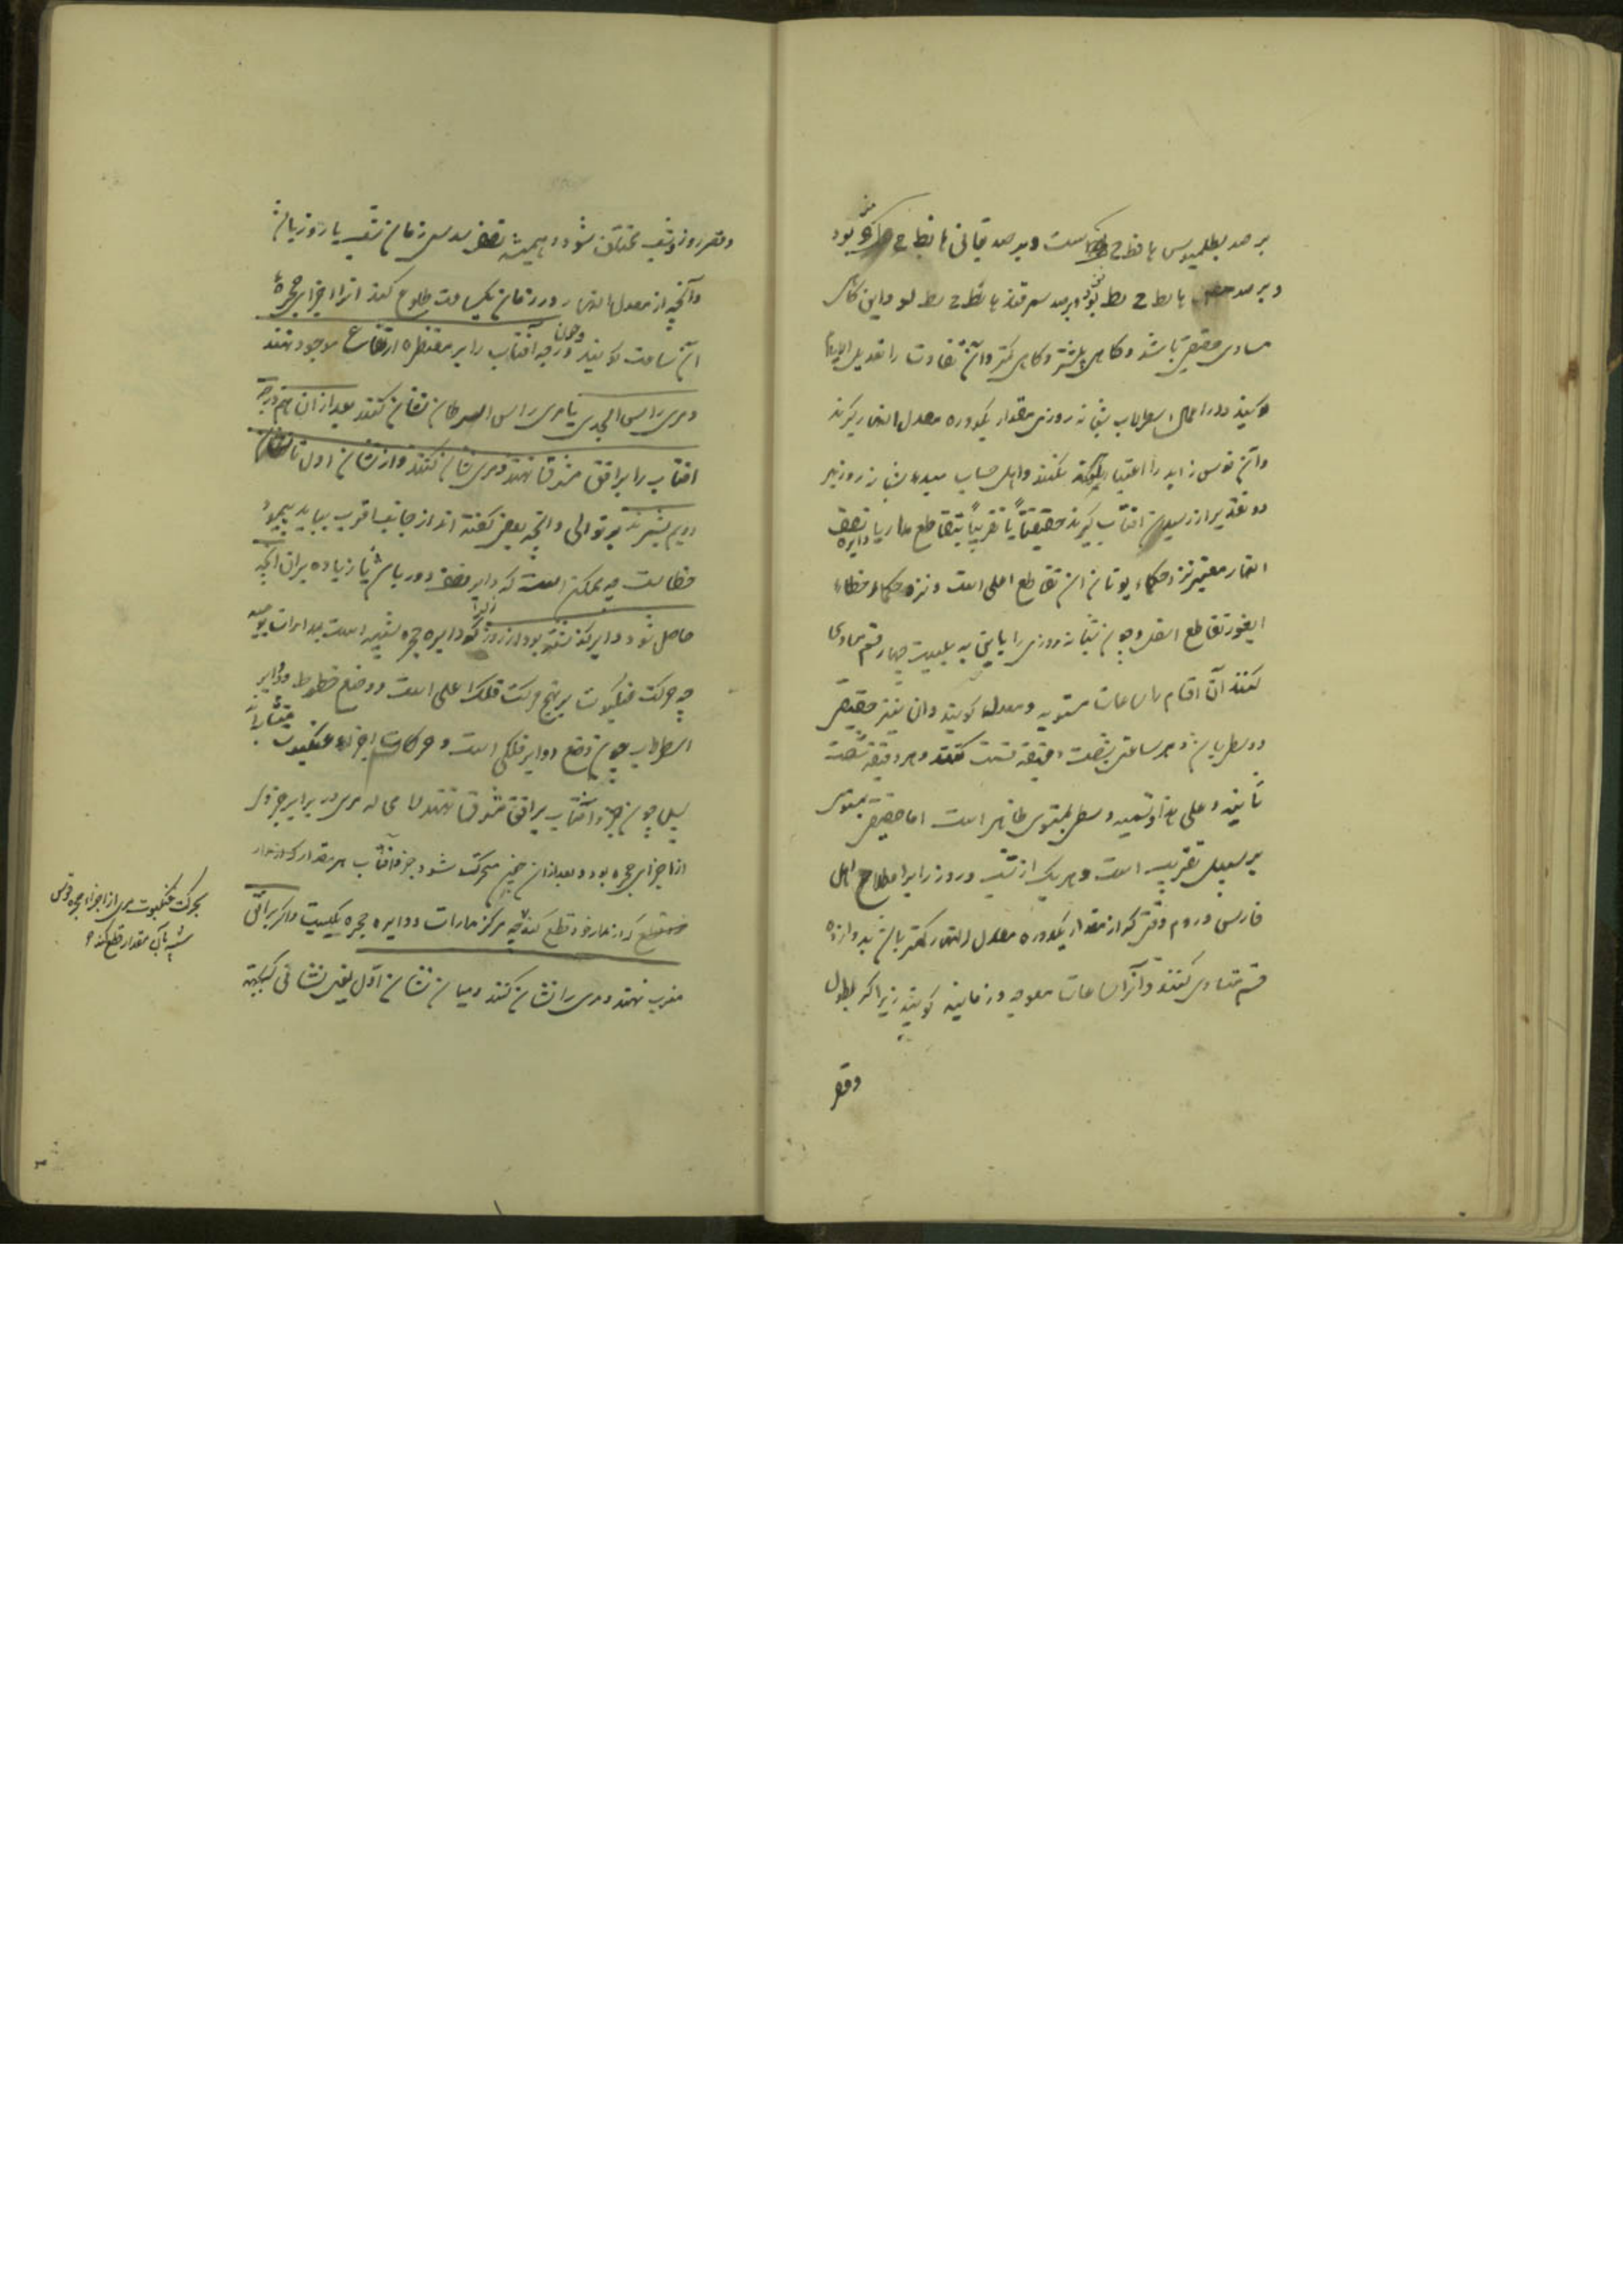 بر صد بطلمیوس با نط ح است وبر صد بتانی با نط ح بود
وبر صد با نط ح نط بود وبر صد سمرقند با نط ح نط لو واین کاهی
مساوی حقیقی باشد وکاهی بیشتر وکاهی کمتر وآن تفاوت را تعدیل الایام
کویند ودر اعمال اسطرلاب شبانه روزی مقدار یکدوره معدل النهار گیرند
وآن قوس زاید را اعتبار نکنند واهل حساب مبدء شبانه روز بر
دو تقدیر از رسیدن آفتاب گیرند حقیقتاً یا تقریباً بتقاطع مدار با دایره نصف
النهار معتبر نزد حکماء یونان آن تقاطع اعلی است ونزد حکماء خطاء
ایغور تقاطع اسفل وچون شبانه روزی را به بیست چهار قسم مساوی
کنند آن اقسام را ساعات مستویه ومعتدله کویند وآن نیز حقیقی
ووسطی باشد وهر ساعتی بشصت دقیقه قسمت کنند وهر دقیقه بشصت
ثانیه وعلی هذا وتسمیه وسطی بمستوی ظاهر است اما حقیقی بمستوی
بر سبیل تقریب است وهر یک از شب وروز را بر اصطلاح اهل
فارس وروم وقتی که از مقدار یکدوره معدل النهار کمتر باشد بدوازده
قسم متساوی کنند وآنرا ساعات معوجه وزمانیه کویند زیرا که بطول
وقصر
وقصر روز وشب مختلف شود وهمیشه نصف سدس زمان شب یا روز باشد
وآنچه از معدل النهار در زمان یکساعت طلوع کند آنرا اجزای حجره
آن ساعت کویند وچون درجه آفتاب را بر مقنطره ارتفاع موجود نهند
ومری راس الجدی یا مری راس السرطان نشان کنند بعد از آن هم درجه
آفتاب را بر افق مشرق نهند ومری نشان کنند واز نشان اول تا نشان
دویم بشمرند بر توالی وآنچه بعضی گفته اند از جانب اقرب بباید پیمود
خطاست چه ممکن است که دایر نصف دور باشد یا زیاده بر آن آنچه
حاصل شود دایر گذشته بود از روز زیرا که دایره حجره شبیه است بمدارات یومیه
چه حرکت عنکبوت بر نهج حرکت فلک اعلی است ووضع خطوط ودوایر
اسطرلاب چون وضع دوایر فلکی است وحرکات اجزاء عنکبوت متشابه
پس چون جزء آفتاب بر افق مشرق نهند لا محاله مری در برابر جزوی
از اجزای حجره بود وبعد از آن چون متحرک شود جزء آفتاب هر مقدار که از مدار
که از مدار خود قطع کند چه مرکز مدارات ودایره حجره یکیست واگر بر افق
مغرب نهند ومری را نشان کنند ومیان نشان اول یعنی نشانی که بجهت
بحرکت عنکبوت مری از اجزاء حجره قوسی
شبیه بآن مقدار قطع کند